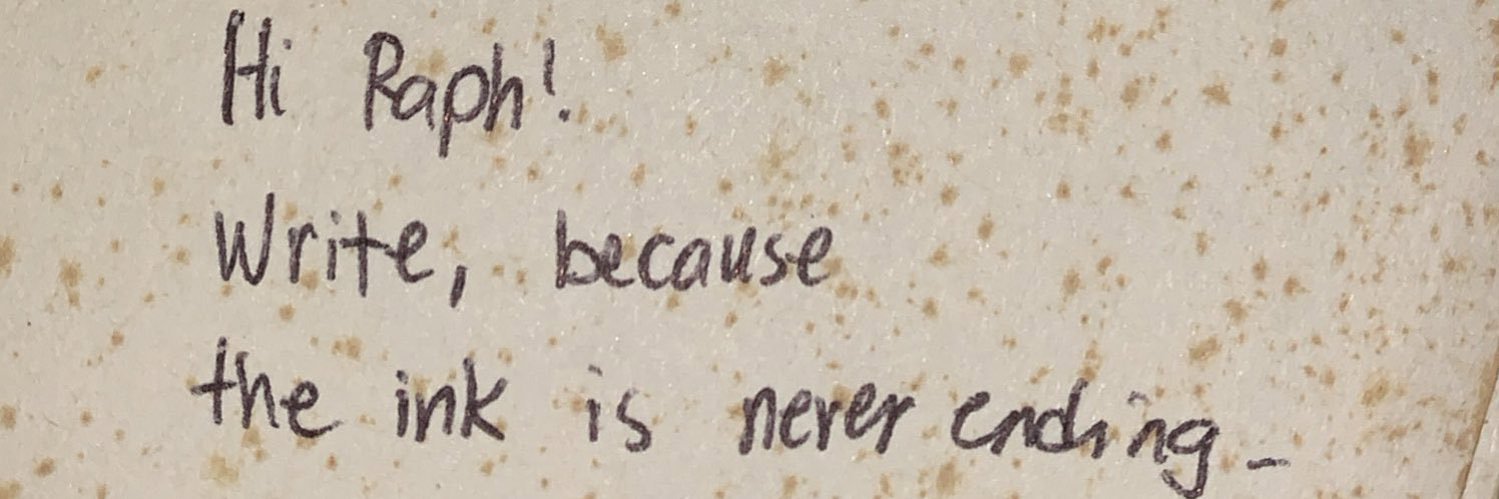 Hi Raph!
Write, because
the ink is never ending_